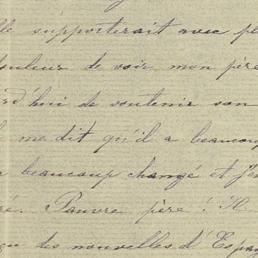 supporterait avec
de voir mon père
d'hui de soutenir son
me dit qu'il a beaucou
beaucoup changé et
Pauvre père ! Il
des nouvelles d'Espa